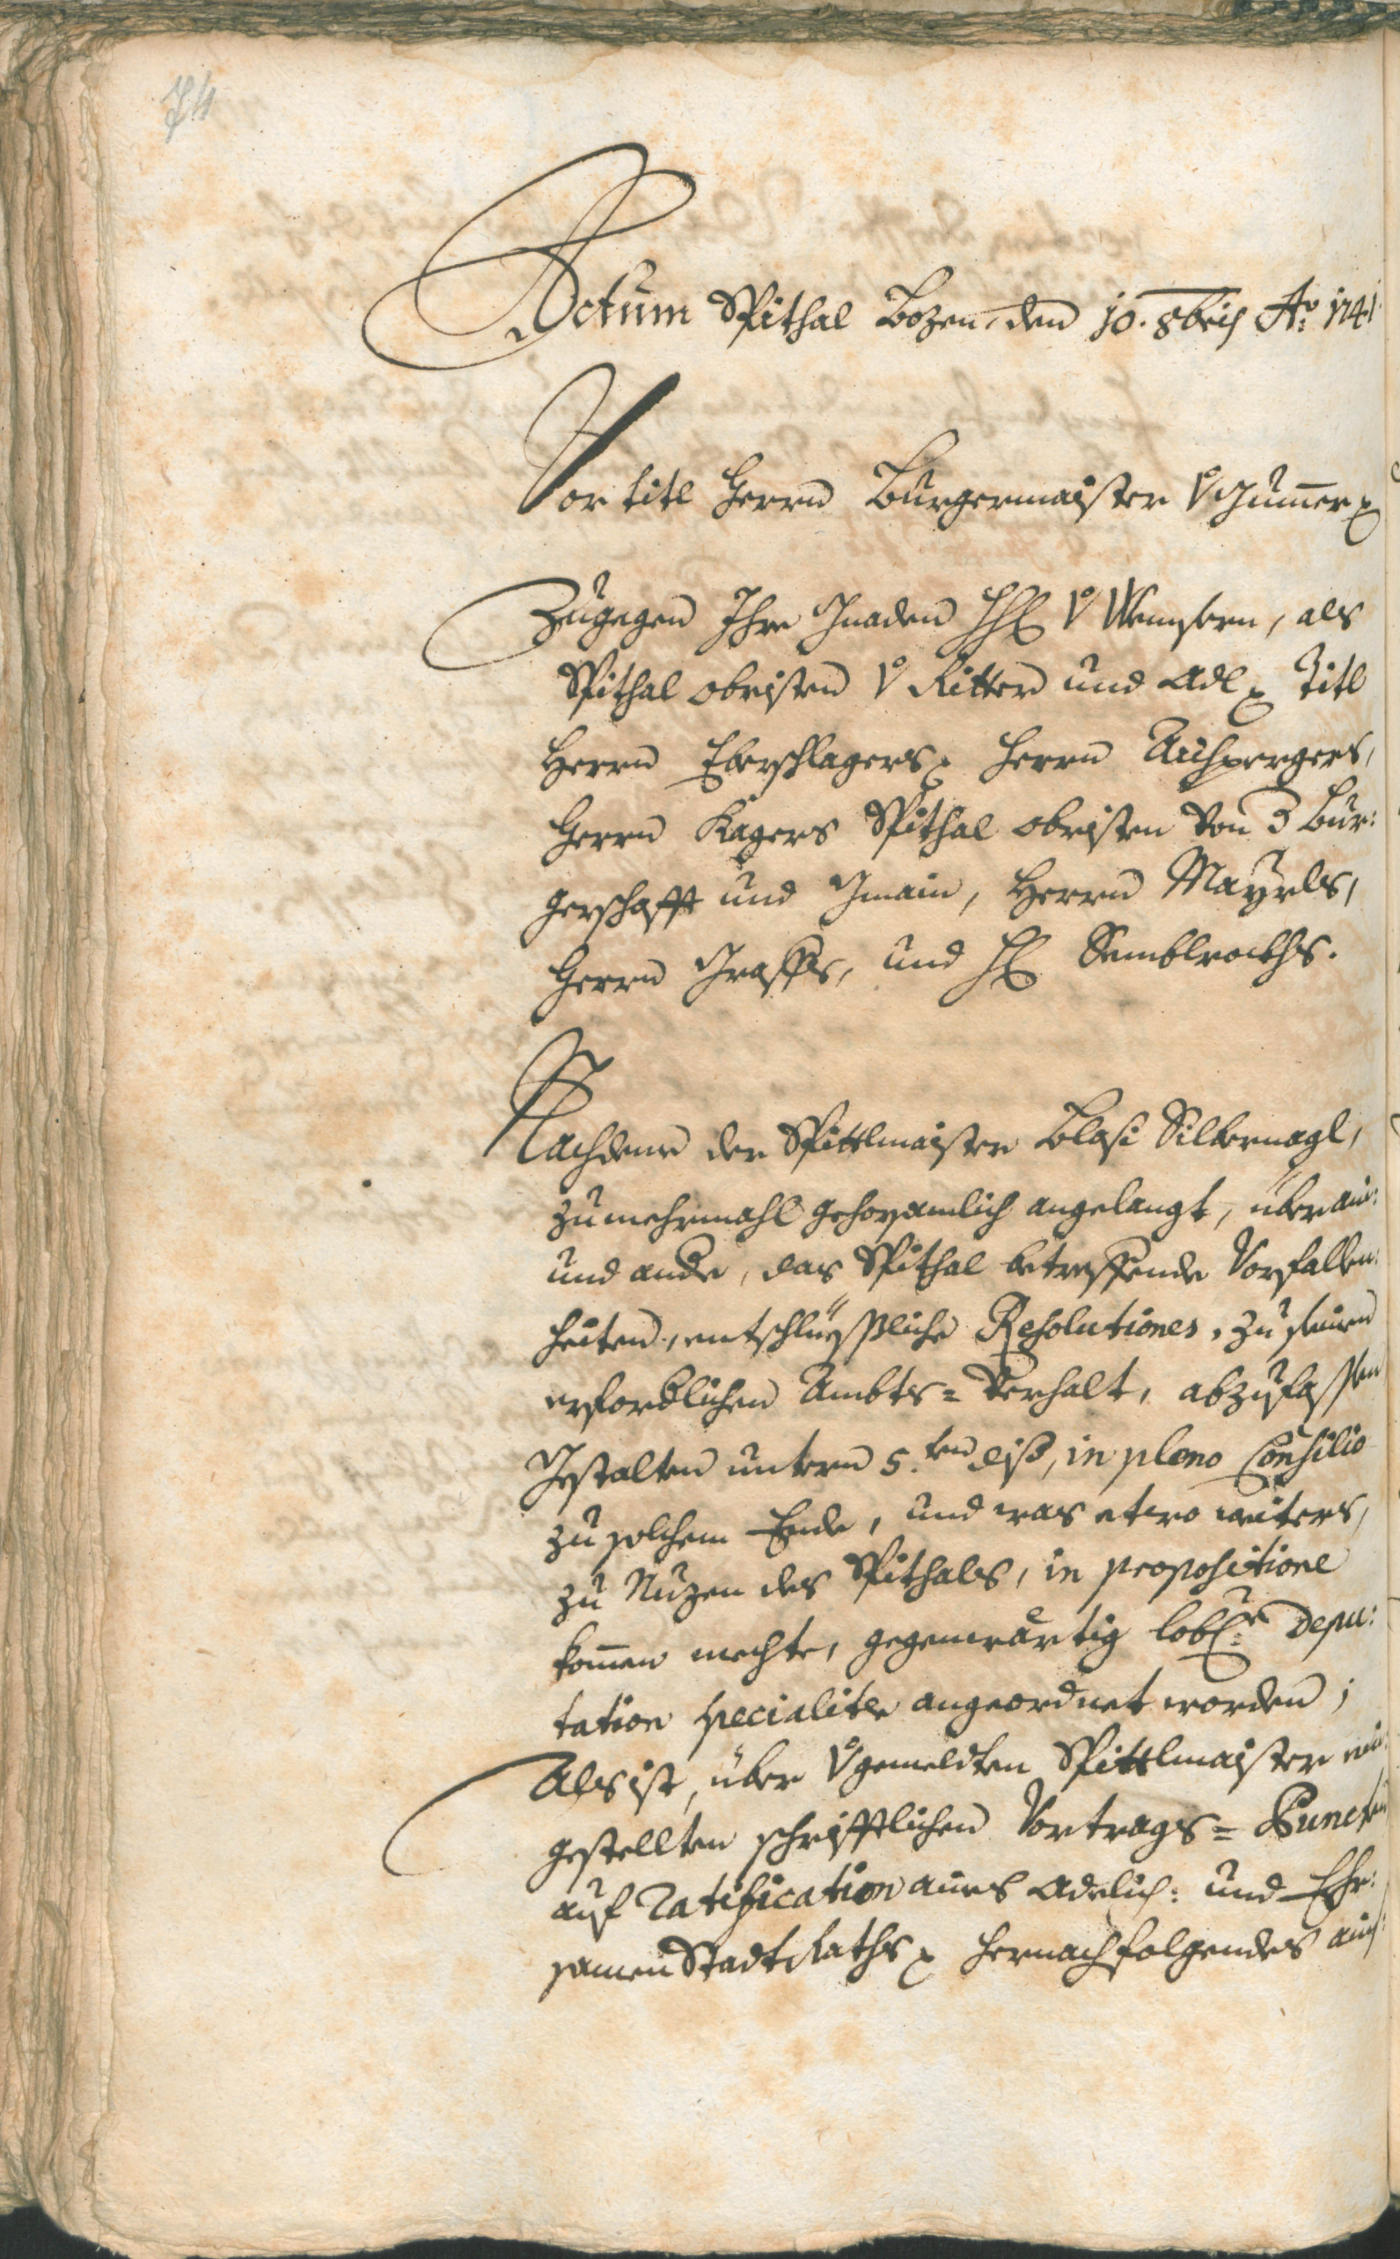 74
Actum Spithal Bozen, den 10. 8bris Ao: 1741
Vor titl Herrn Burgermaister v Gumer
Zugegen Ihre Gnaden HH v Wenseren, als
Spithal obristen v Ritter und Adl Titl
Herrn Eberschlagers Herrn Auchpergers,
Herrn Kagers Spithal obristen von d Bur:
gerschafft und Gmain, Herrn Mayrls,
Herrn Graffs, und H Semblroths.
Nachdeme der Spittlmaister Blasi Silbernagl,
zu mehrmahl gehorsamlich angelangt, über ain:
und ande, das Spithal betreffende Vorfallen:
heiten, entschlüssliche Resolutiones, zu seinen
erfordlichen Ambts= Verhalt, abzufassen
Gestalten untern 5.ten diss, in pleno Consilio
zu solchem Ende, und was etwo weiters,
zu Nuzen des Spithals, in propositione
komen mechte, gegenwärtig lobl: Depu:
tation specialiter angeordnet worden;
Als ist, über vgemeldten Spittlmaister ein
gestellten schrifftlichen Vortrags= Puncten
auf Ratification aines Adelich: und Ehr:
samen Stadt Raths hernachfolgendes auf